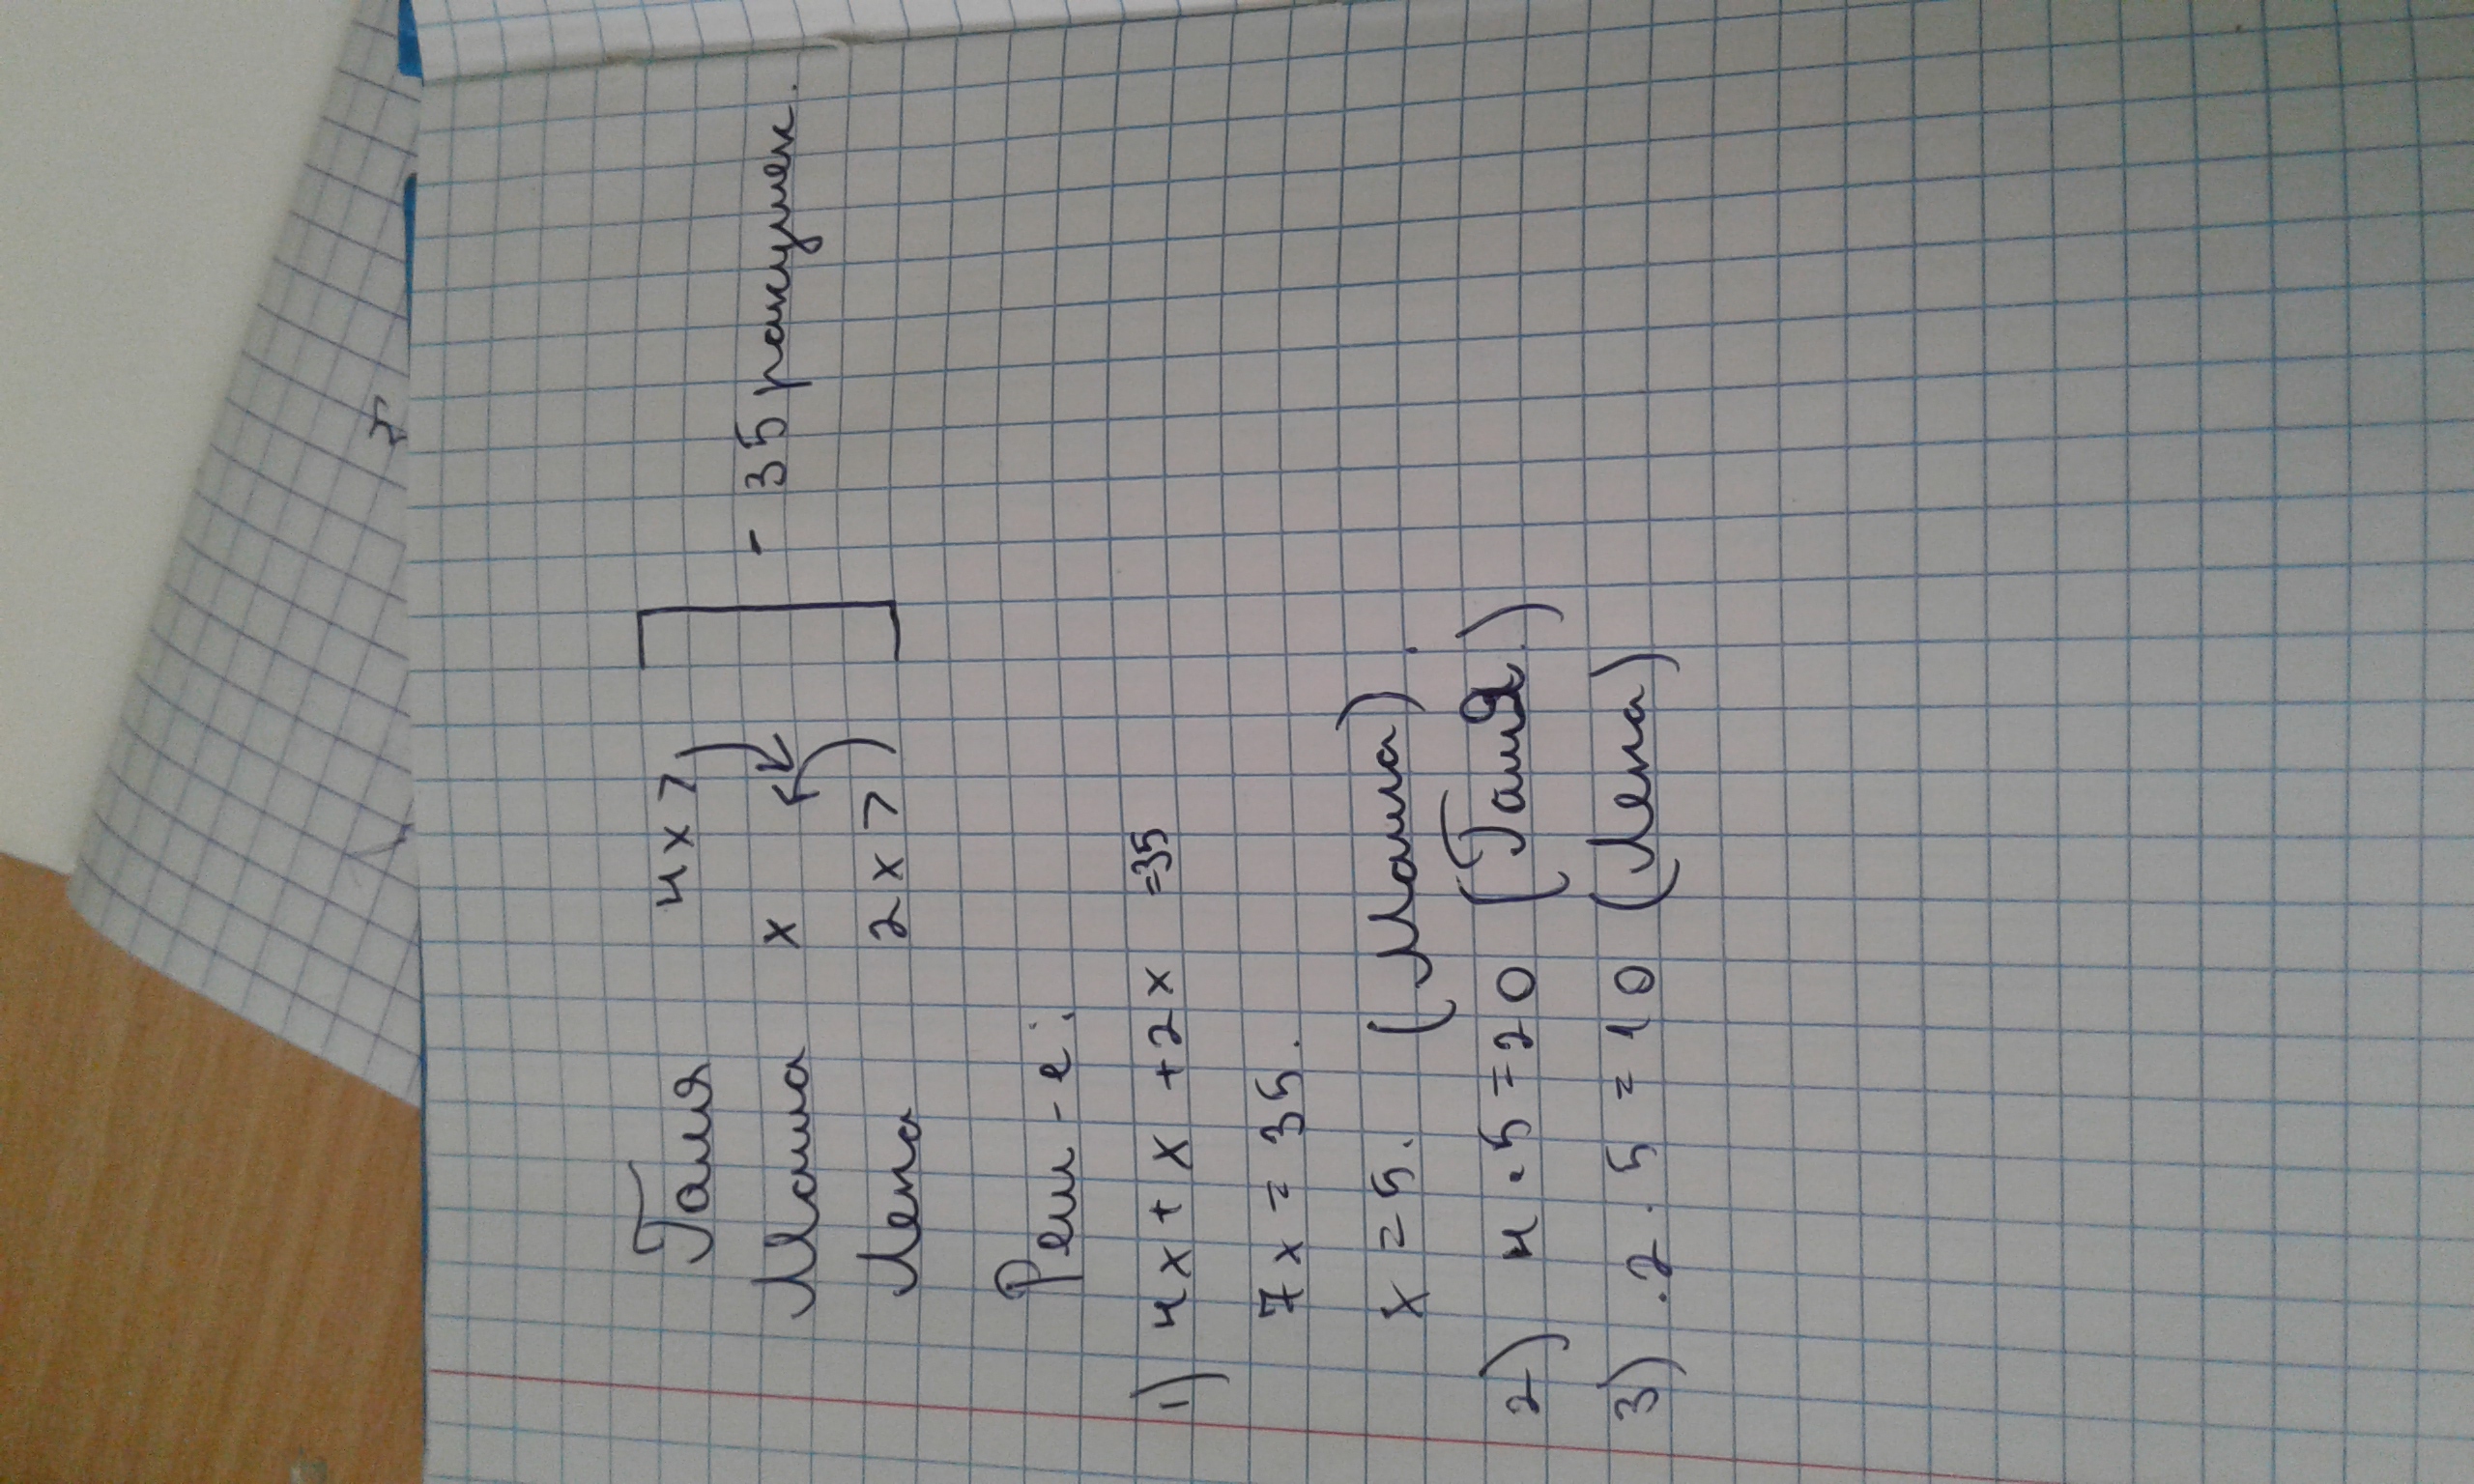 Галя 4x >
Маша x
Лена 2x >
- 35 ракушек.
Реш-е:
1) 4x + x + 2x = 35
7x = 35.
x = 5. (Маша).
2) 4 · 5 = 20 (Галя.)
3) . 2 · 5 = 10 (Лена)